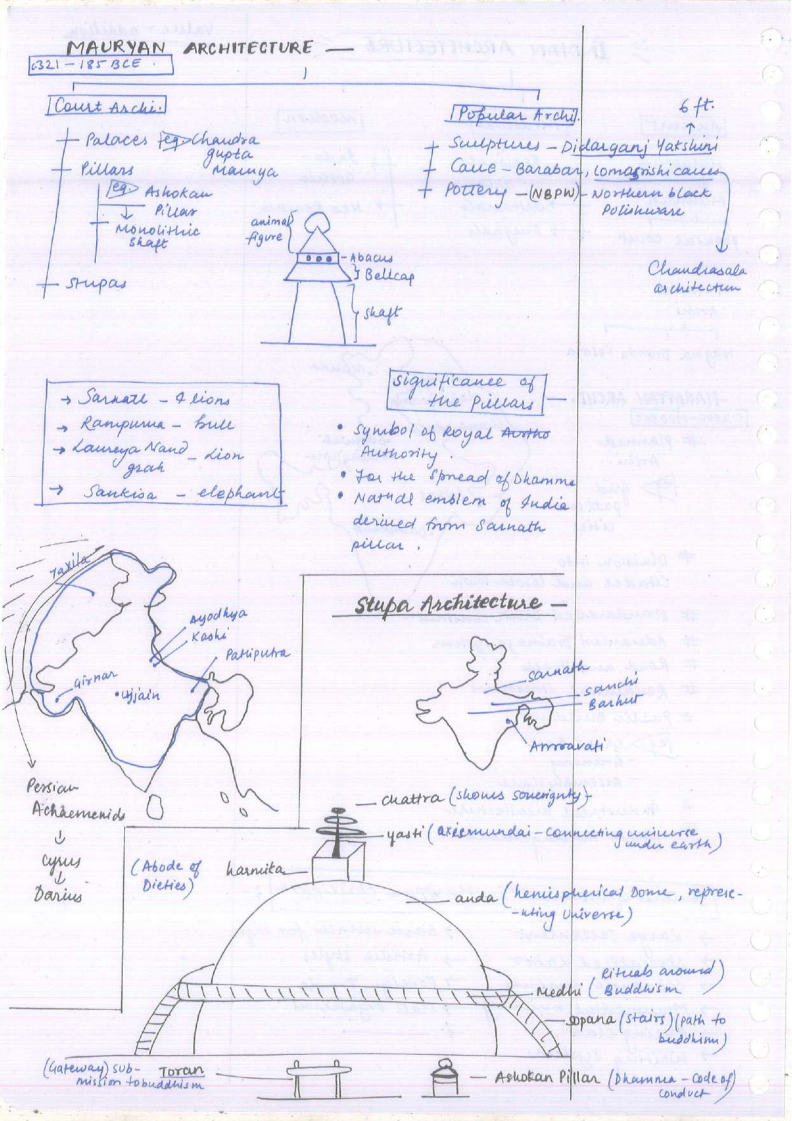 MAURYAN ARCHITECTURE —
321 – 185 BCE.
Court Archi.
Palaces eg Chandra
gupta
Maurya
Pillars
eg Ashokan
Pillar
Monolithic
shaft
Stupas
Popular Archi.
6 ft.
Sculptures – Didarganj Yakshini
Cave – Barabar, Lomasrishi caves
Pottery – (NBPW) – Northern black
Polishware
Chandrasala
architecture
animal
figure
Abacus
Bellcap
shaft
→ Sarnath – 4 lions
→ Rampurwa – bull
→ Laureya Nand – Lion
grah
→ Sankisa – elephant
Significance of
the Pillars
• Symbol of Royal
Authority.
• For the Spread of Dhamma
• National emblem of India
derived from Sarnath
pillar.
Taxila
Ayodhya
Kashi
Patliputra
Girnar
Ujjain
Persian
Achaemenids
↓
Cyrus
↓
Darius
Stupa Architecture —
Sarnath
Sanchi
Barhut
Amravati
chattra (shows soverignty)
yasti (axismundai – connecting universe
under earth)
(Abode of
Dieties)
harmita
anda (hemispherical Dome, represe-
-nting universe)
Medhi (Rituals around
Buddhism)
sopana (stairs) (path to
buddhism)
(Gateway) sub-
mission to buddhism
Toran
Ashokan Pillar (Dhamma – code of
conduct)